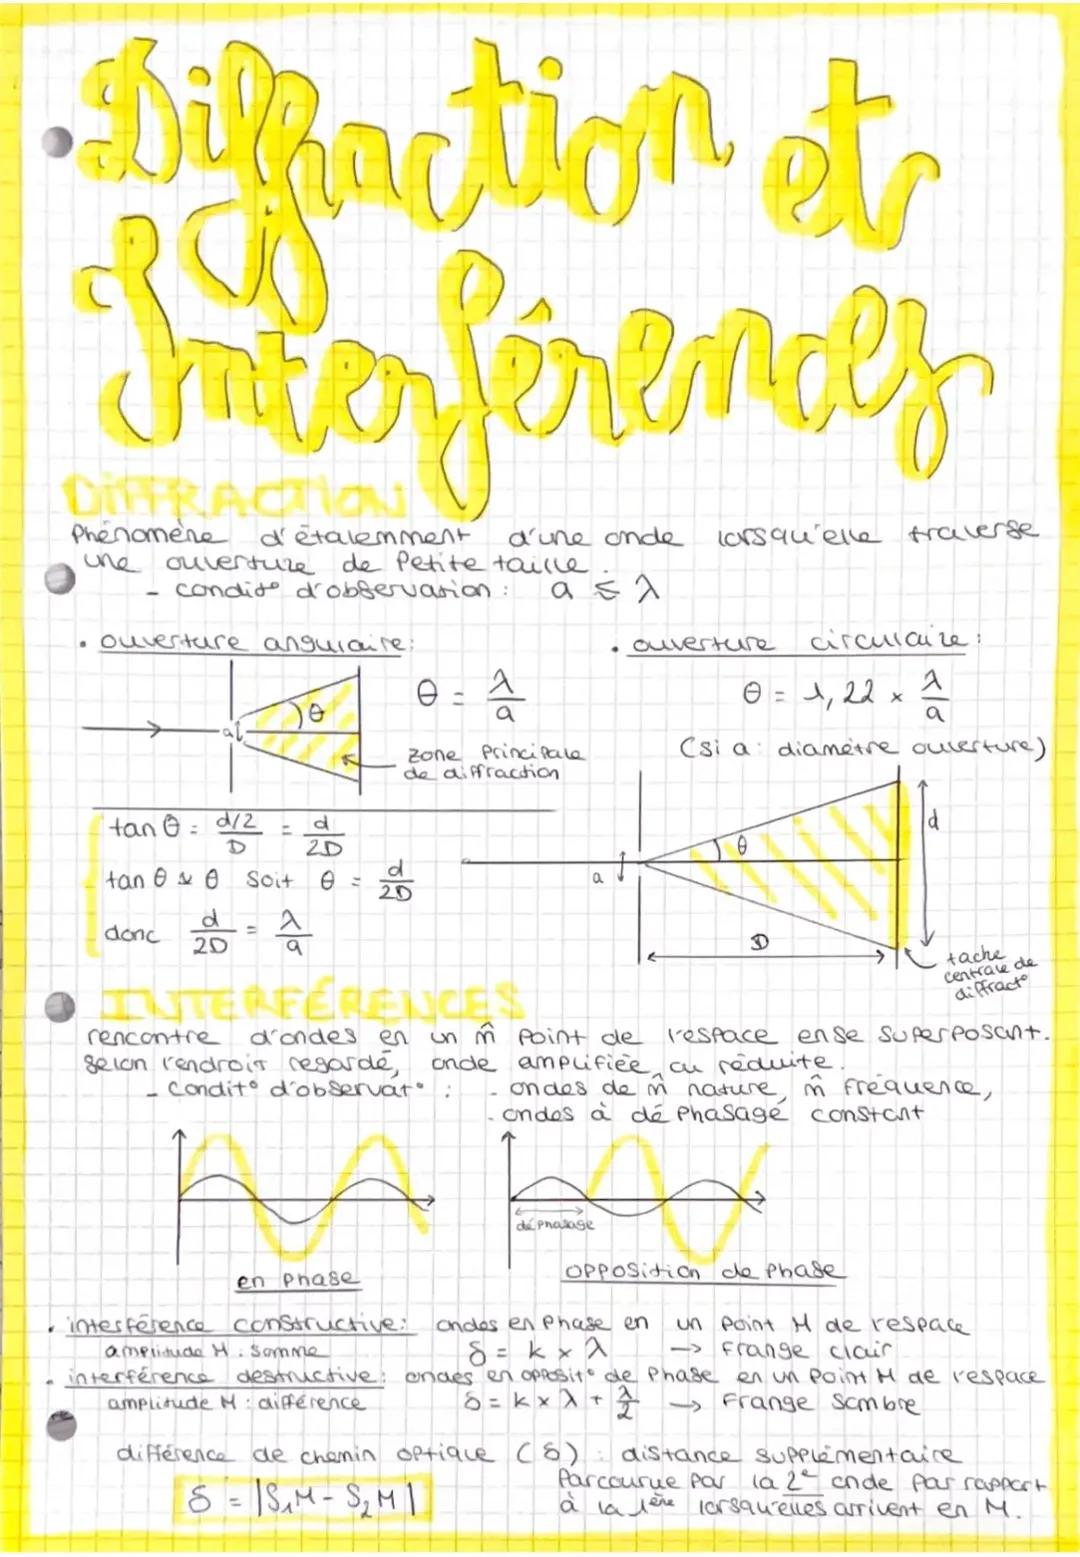 Diffraction et
Interférences
DIFFRACTION
Phénomène d'étalemment d'une onde lorsqu'elle traverse
une ouverture de petite taille.
- condit° d'observation : a ≤ λ
• ouverture angulaire:
θ = λ/a
a
θ
zone principale
de diffraction
• ouverture circulaire:
θ = 1,22 × λ/a
(si a: diamètre ouverture)
tan θ = d/2/D = d/2D
tan θ ≈ θ soit θ = d/2D
donc d/2D = λ/a
a
θ
d
D
tache
centrale de
diffract°
INTERFÉRENCES
rencontre d'ondes en un m̂ point de l'espace en se superposant.
selon l'endroit regardé, onde amplifiée ou réduite.
- condit° d'observat° : - ondes de m̂ nature, m̂ fréquence,
- ondes à déphasage constant
déphasage
en phase
opposition de phase
• interférence constructive: ondes en phase en un point M de l'espace
amplitude M : somme δ = k × λ → frange clair
• interférence destructive: ondes en opposit° de phase en un point M de l'espace
amplitude M : différence δ = k × λ + λ/2 → frange sombre
différence de chemin optique (δ) : distance supplémentaire
parcourue par la 2e onde par rapport
à la 1ère lorsqu'elles arrivent en M.
δ = |S₁M - S₂M|